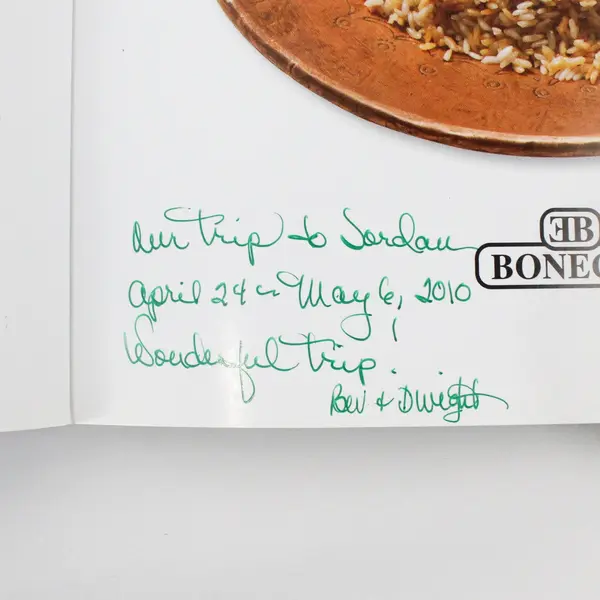 Our trip to Jordan
April 24 - May 6, 2010
Wonderful trip!
Bev & Dwight
EB
BONEC